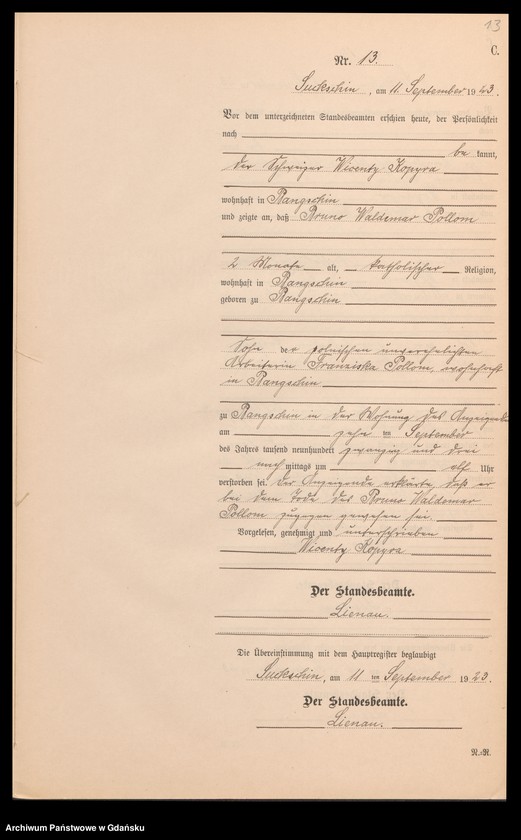 13
C.
Nr. 13.
Suckschin, am 11. September 1923.
Vor dem unterzeichneten Standesbeamten erschien heute, der Persönlichkeit
nach
be kannt,
der Schweizer Wicenty Kopyra
wohnhaft in Rangschin
und zeigte an, daß Bruno Waldemar Pollom
2 Monate alt, katholischer Religion,
wohnhaft in Rangschin
geboren zu Rangschin
Sohn der polnischen unverehelichten
Arbeiterin Franziska Pollom, wohnhaft
in Rangschin
zu Rangschin in der Wohnung des Anzeigenden
am zehn ten September
des Jahrs tausend neunhundert zwanzig und drei
nach mittags um elf Uhr
verstorben sei. Der Anzeigende erklärte, daß er
bei dem Tode des Bruno Waldemar
Pollom zugegen gewesen sei.
Vorgelesen, genehmigt und unterschrieben
Wicenty Kopyra
Der Standesbeamte.
Lienau.
Die Übereinstimmung mit dem Hauptregister beglaubigt
Suckschin, am 11 ten September 1923.
Der Standesbeamte.
Lienau.
N.-R.
Archiwum Państwowe w Gdańsku